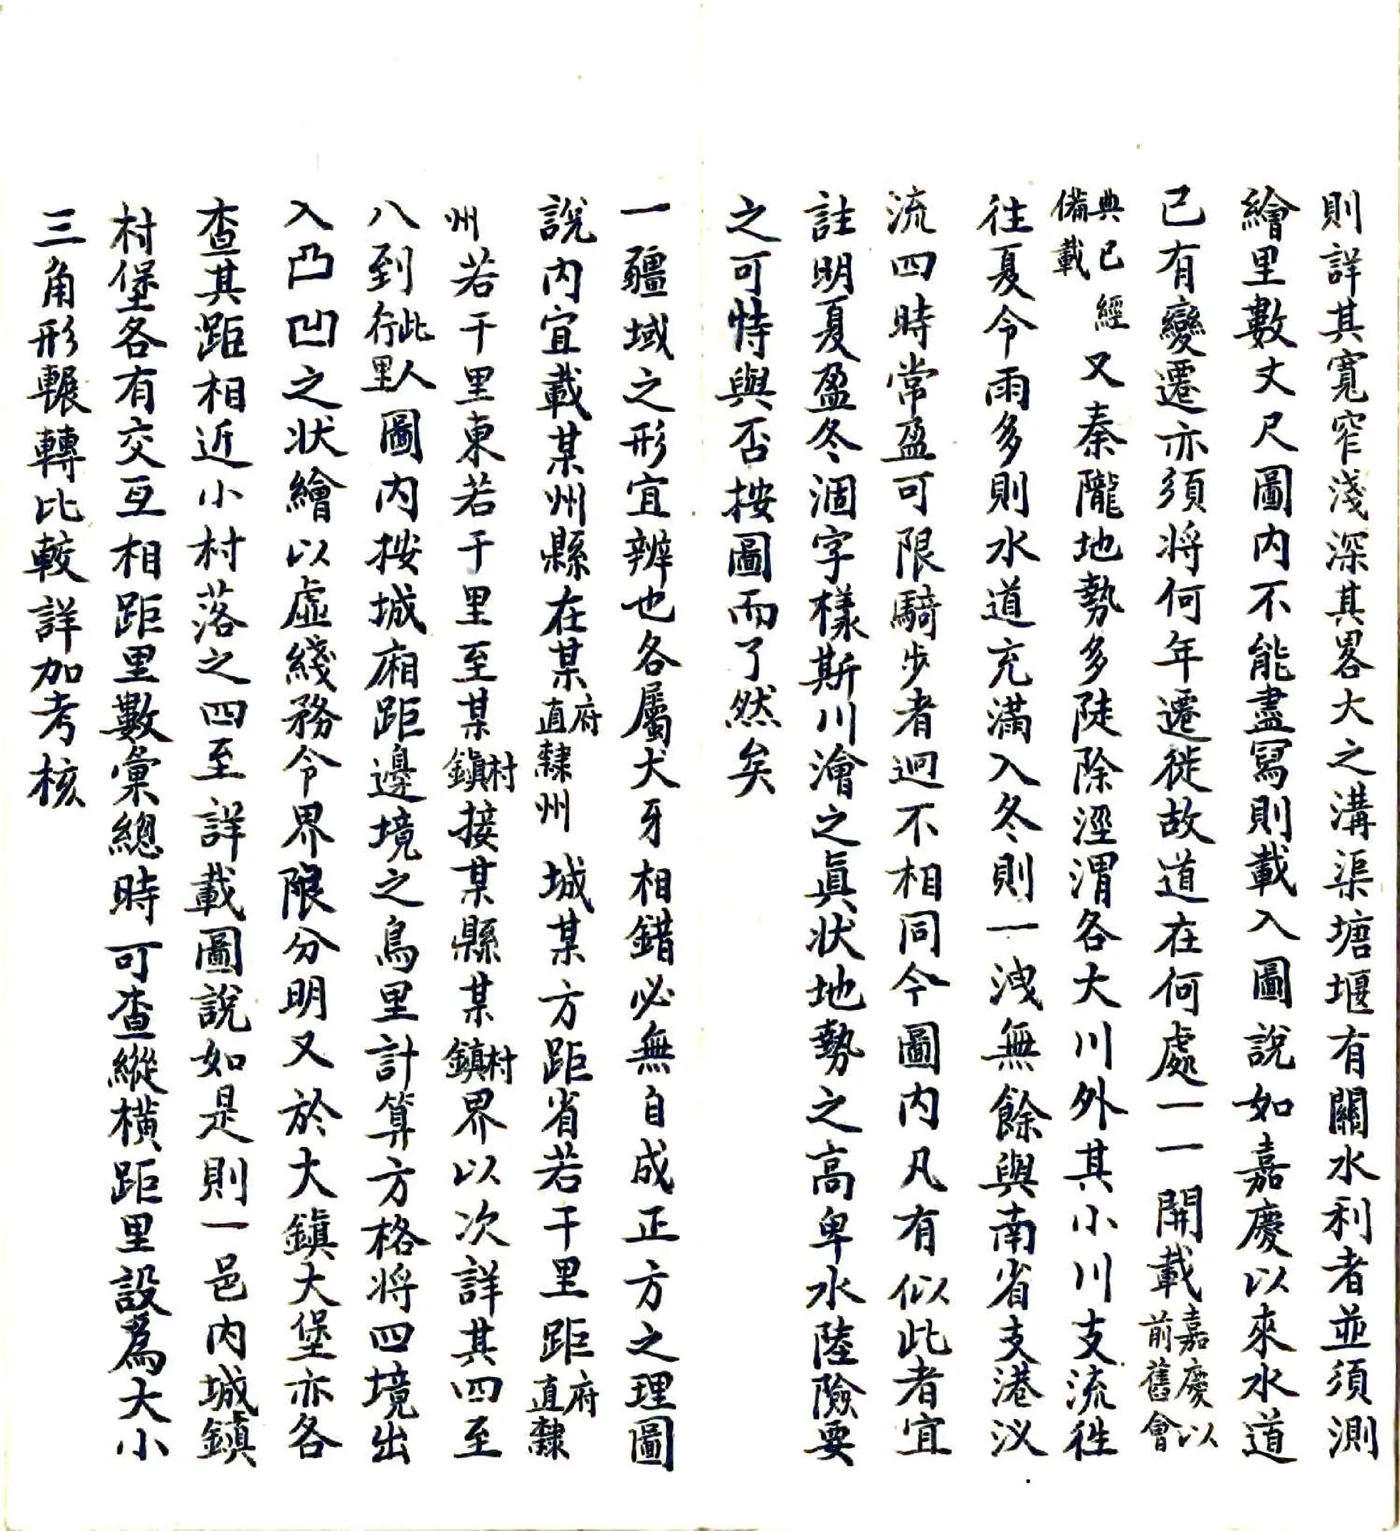 則詳其寬窄淺深其畧大之溝渠塘堰有關水利者並須測
繪里數丈尺圖內不能盡寫則載入圖說如嘉慶以來水道
已有變遷亦須將何年遷徙故道在何處一一開載嘉慶以前舊會
典已經備載又秦隴地勢多陡除涇渭各大川外其小川支流徃
往夏令雨多則水道充滿入冬則一洩無餘與南省支港汊
流四時常盈可限騎步者迥不相同今圖內凡有似此者宜
註明夏盈冬涸字樣斯川澮之眞狀地勢之高卑水陸險要
之可恃與否按圖而了然矣
一疆域之形宜辨也各屬犬牙相錯必無自成正方之理圖
說內宜載某州縣在某府直隸州城某方距省若干里距府直隸
州若干里東若干里至某村鎮接某縣某村鎮界以次詳其四至
八到此人行里圖內按城廂距邊境之鳥里計算方格將四境出
入凸凹之狀繪以虛綫務令界限分明又於大鎮大堡亦各
查其距相近小村落之四至詳載圖說如是則一邑內城鎮
村堡各有交互相距里數彙總時可查縱橫距里設為大小
三角形輾轉比較詳加考核